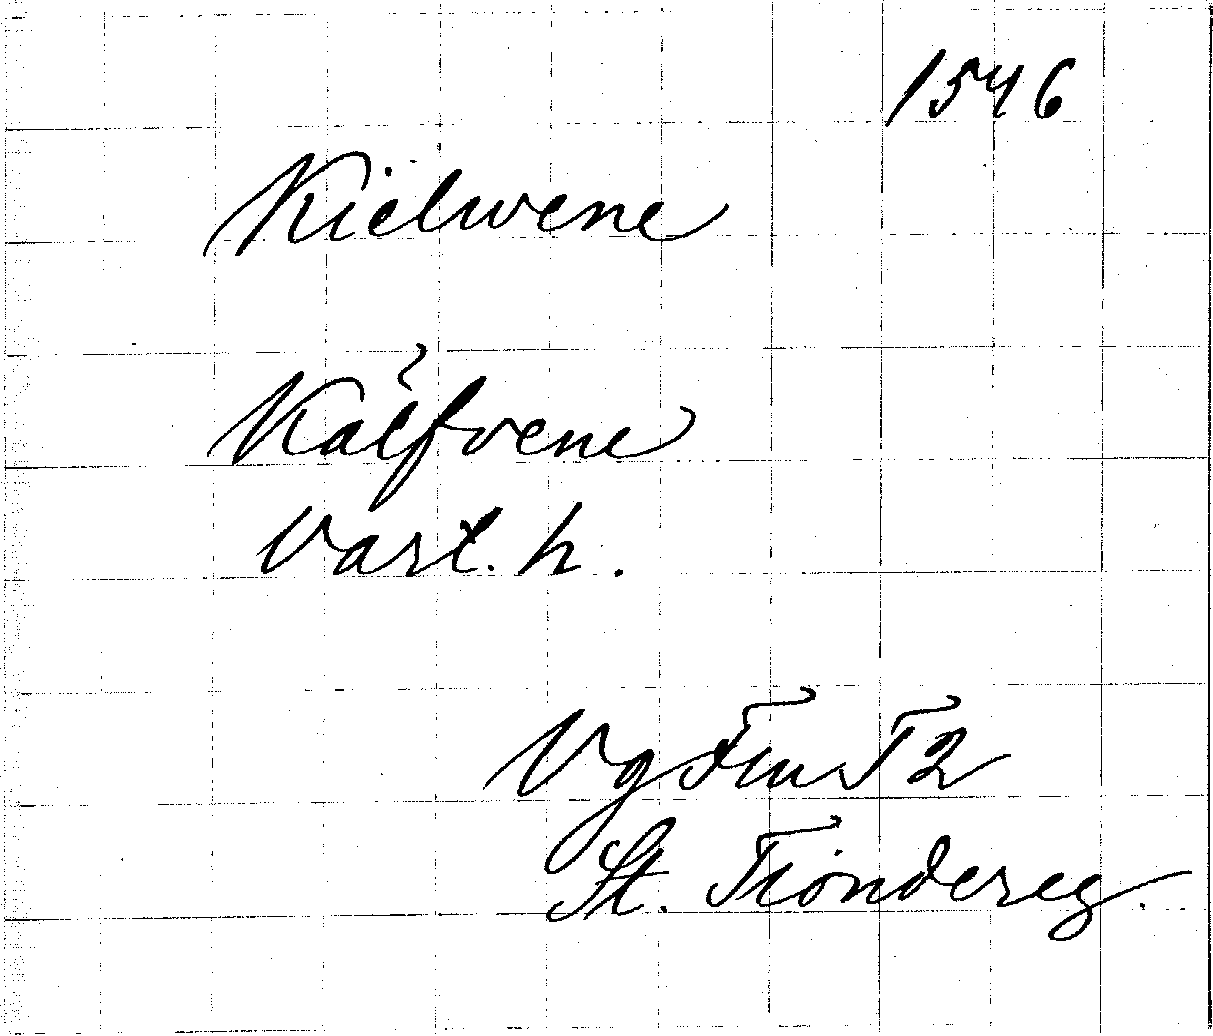 1546
Kielwene
Kälfvene
Vart. h.
Vg Fin T2
St. Tiondereg.